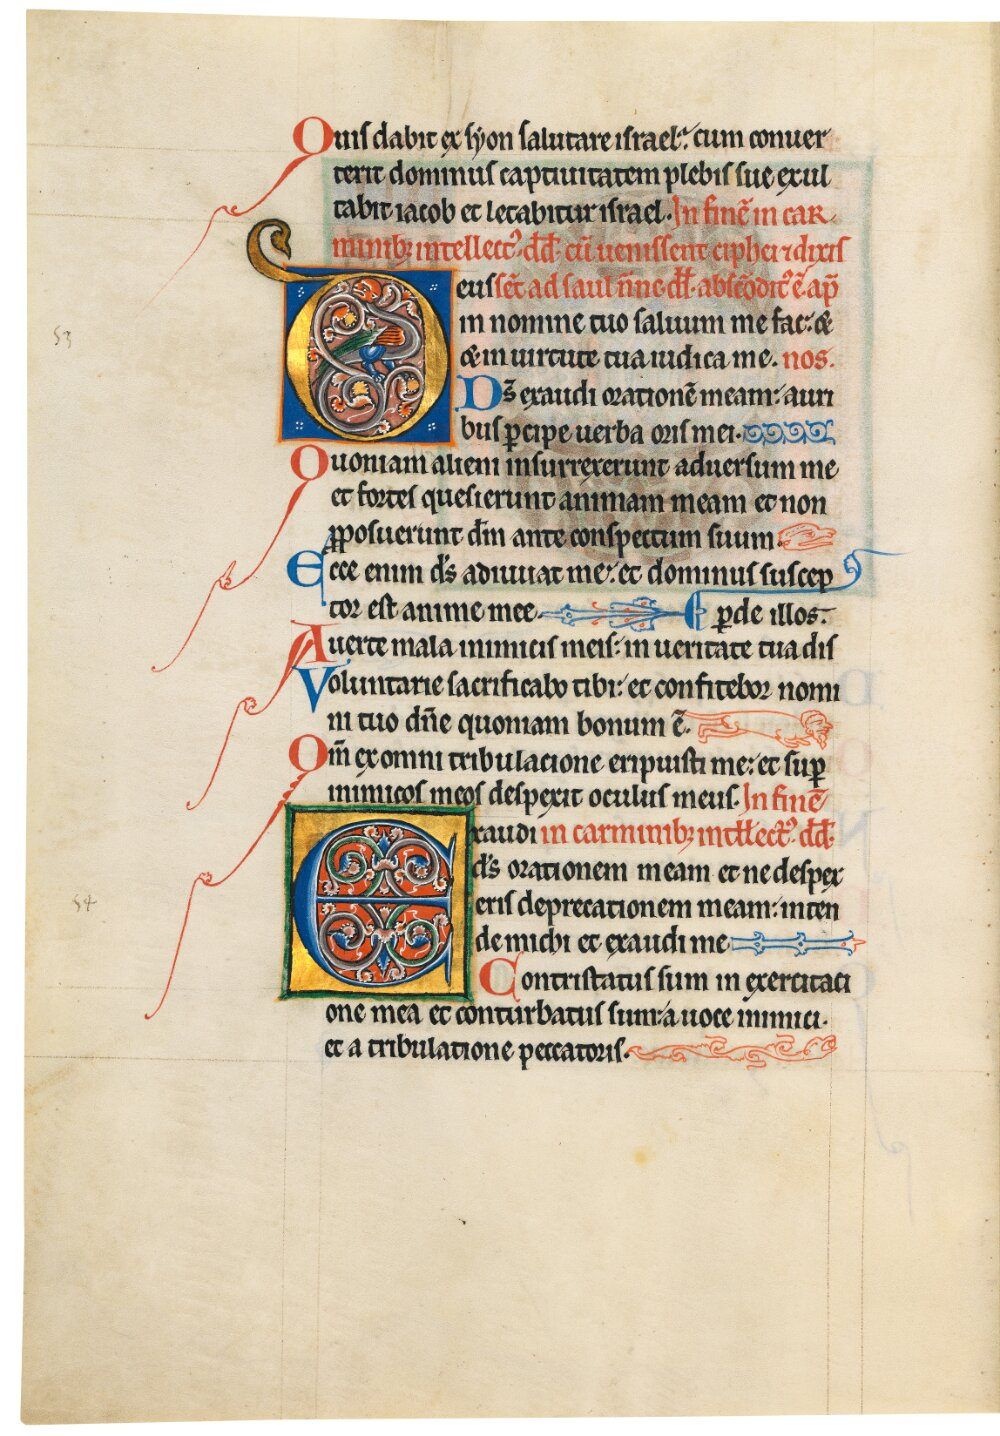 Quis dabit ex syon salutare israel: cum conuer
terit dominus captiuitatem plebis sue exul
tabit iacob et letabitur israel. In finē in car
minibꝫ intellectꝰ dd̄. cū uenissent ciphei ⁊ dixis
Deus sēt ad saul n̄ne dd̄. abscōditꝰ ē ap̄
in nomine tuo saluum me fac: &
53
& in uirtute tua iudica me. nos.
Ds̄ exaudi orationē meam: auri
bus ꝑcipe uerba oris mei.
Quoniam alieni insurrexerunt aduersum me
et fortes quesierunt animam meam et non
ꝓposuerunt dm̄ ante conspectum suum.
Ecce enim ds̄ adiuuat me: et dominus suscep
tor est anime mee
ꝑde illos.
Auerte mala inimicis meis: in ueritate tua dis
Voluntarie sacrificabo tibi: et confitebor nomi
ni tuo dn̄e quoniam bonum ē.
Qm̄ ex omni tribulatione eripuisti me: et suꝑ
inimicos meos despexit oculus meus. In finē
Exaudi in carminibꝫ intll̄ectꝰ dd̄.
ds̄ orationem meam et ne despex
54
eris deprecationem meam: inten
de michi et exaudi me
Contristatus sum in exercitati
one mea et conturbatus sum: a uoce inimici.
et a tribulatione peccatoris.